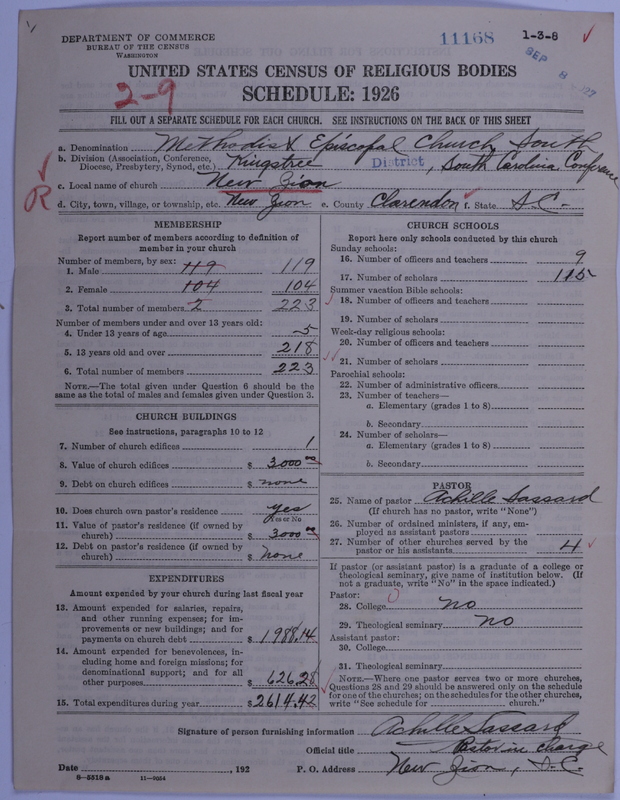 DEPARTMENT OF COMMERCE
BUREAU OF THE CENSUS
WASHINGTON
11168
1-3-8
SEP 8 '27
UNITED STATES CENSUS OF RELIGIOUS BODIES
2-9
SCHEDULE: 1926
FILL OUT A SEPARATE SCHEDULE FOR EACH CHURCH. SEE INSTRUCTIONS ON THE BACK OF THIS SHEET
a. Denomination Methodist Episcopal Church, South
b. Division (Association, Conference, Diocese, Presbytery, Synod, etc.) Kingstree District, South Carolina Conference
R
c. Local name of church New Zion
d. City, town, village, or township, etc. New Zion e. County Clarendon f. State S.C.
MEMBERSHIP
Report number of members according to definition of
member in your church
Number of members, by sex:
1. Male 119 119
2. Female 104 104
3. Total number of members 2 223
Number of members under and over 13 years old:
4. Under 13 years of age 5
5. 13 years old and over 218
6. Total number of members 223
NOTE.—The total given under Question 6 should be
same as the total of males and females given under Question 3.
CHURCH BUILDINGS
See instructions, paragraphs 10 to 12
7. Number of church edifices 1
8. Value of church edifices $ 3000 00
9. Debt on church edifices $ none
10. Does church own pastor's residence yes
Yes or No
11. Value of pastor's residence (if owned by
church) $ 3000 00
12. Debt on pastor's residence (if owned by
church) $ None
EXPENDITURES
Amount expended by your church during last fiscal year
13. Amount expended for salaries, repairs,
and other running expenses; for im-
provements or new buildings; and for
payments on church debt $ 1988.14
14. Amount expended for benevolences, in-
cluding home and foreign missions; for
denominational support; and for all
other purposes $ 626.28
15. Total expenditures during year $ 2614.42
CHURCH SCHOOLS
Report here only schools conducted by this church
Sunday schools:
16. Number of officers and teachers 9
17. Number of scholars 115
Summer vacation Bible schools:
18. Number of officers and teachers
19. Number of scholars
Week-day religious schools:
20. Number of officers and teachers
21. Number of scholars
Parochial schools:
22. Number of administrative officers
23. Number of teachers—
a. Elementary (grades 1 to 8)
b. Secondary
24. Number of scholars—
a. Elementary (grades 1 to 8)
b. Secondary
PASTOR
25. Name of pastor Achille Sassard
(If church has no pastor, write "None")
26. Number of ordained ministers, if any, em-
ployed as assistant pastors
27. Number of other churches served by the
pastor or his assistants 4
If pastor (or assistant pastor) is a graduate of a college or
theological seminary, give name of institution below. (If
not a graduate, write "No" in the space indicated.)
Pastor:
28. College no
29. Theological seminary no
Assistant pastor:
30. College
31. Theological seminary
NOTE.—Where one pastor serves two or more churches,
Questions 28 and 29 should be answered only on the schedule
for one of the churches; on the schedules for the other churches,
write "See schedule for ________ church."
Signature of person furnishing information Achille Sassard
Official title Pastor in charge
Date ________, 192 P. O. Address New Zion, S.C.
8-5518a 11-9054